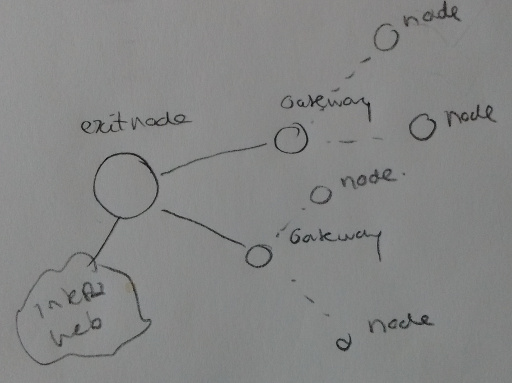 node
Gateway
node
exitnode
node.
Gateway
node
web